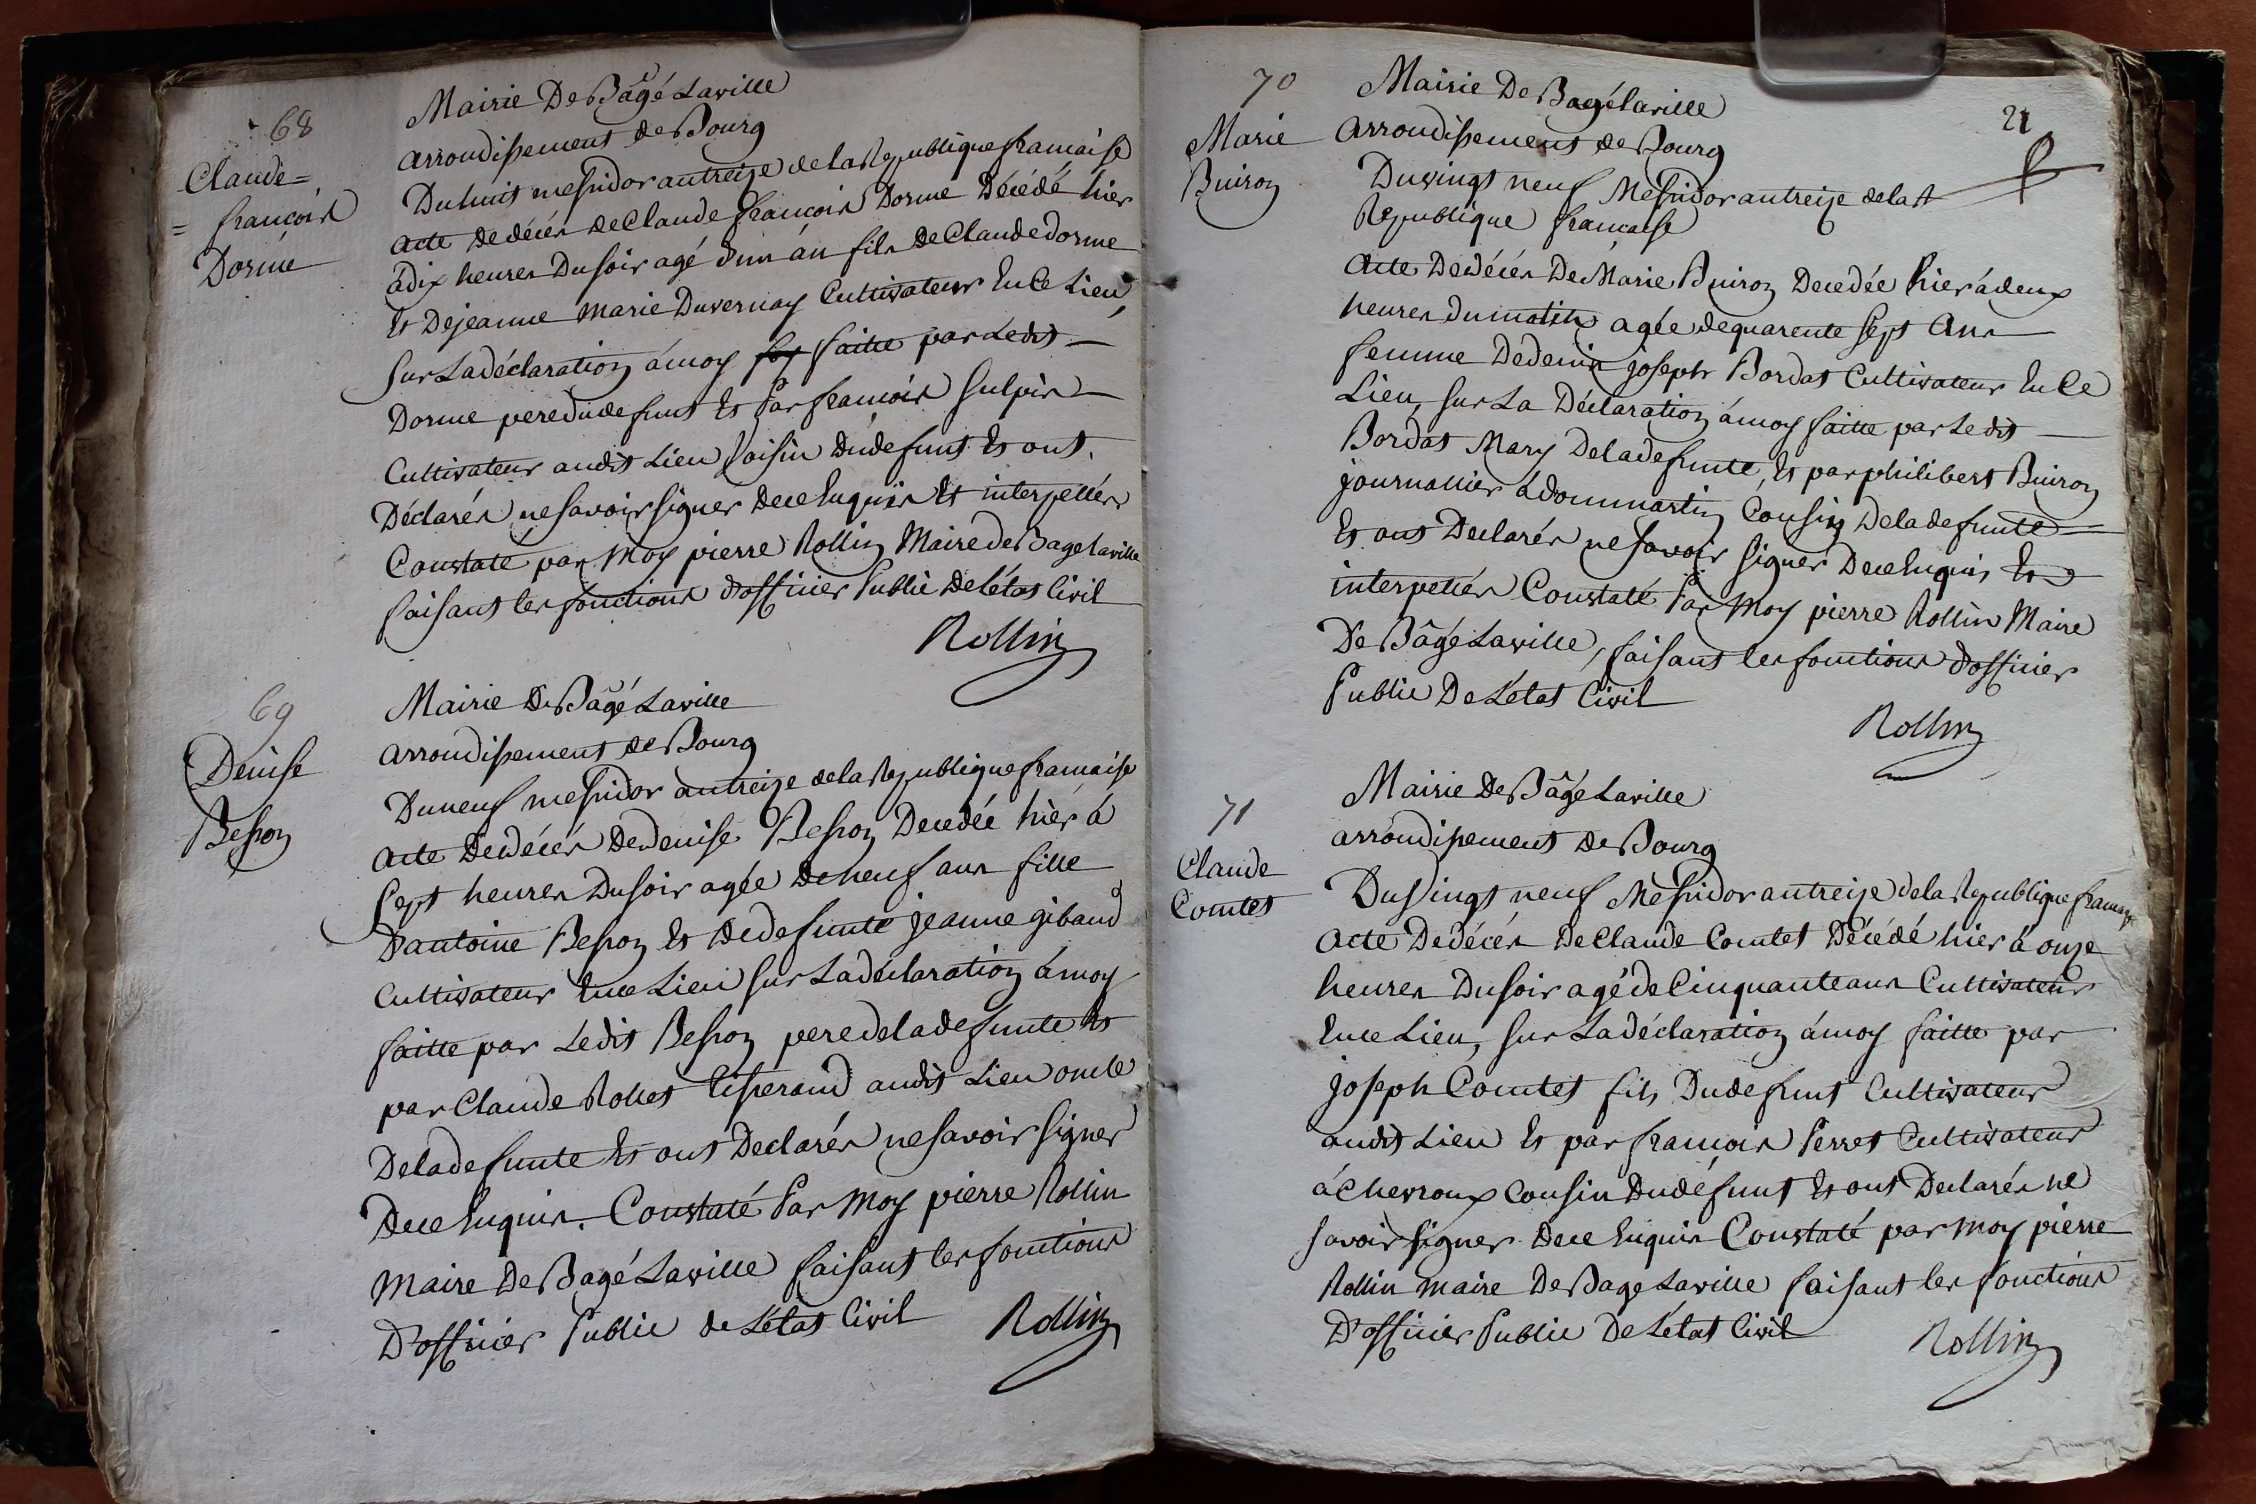 68
Claude=
=françois
Dorme
Mairie De Bâgé Laville
arrondissement de Bourg
Du huit messidor an treize de la Republique francaise
acte de décès de Claude françois Dorme Décédé hier
à dix heures Du soir agé d'un án fils de Claude dorme
Et De jeanne marie Duvernay Cultivateur En Ce Lieu,
sur La déclaration à moy faitte par Ledit
Dorme pere du defunt Et Par francois Sulpis
Cultivateur audit Lieu Voisin du defunt Et ont
Déclarés ne savoir signer De ce Enquis Et interpellés
Constaté par Moy pierre Rollin Maire de Bage Laville
faisant les fonctions d'officier Public De L'état Civil
Rollin
69
Denise
Besson
Mairie De Bâgé Laville
arrondissement de Bourg
Du neuf messidor an treize de la Republique francaise
acte De décès De denise Besson Decedée hier à
sept heures Du soir agée de neuf ans fille
D'antoine Besson Et De defunte jeanne gibaud
Cultivateur En ce Lieu sur La déclaration à moy
faitte par Ledit Besson pere de la defunte Et
par Claude Rollet tisserand audit Lieu oncle
De la defunte Et ont Declarés ne savoir signer
De ce Enquis. Constaté Par Moy pierre Rollin
Maire De Bagé Laville faisant les fonctions
D'officier Public de L'état Civil
Rollin
70
Marie
Buiron
21
Mairie De Bagé laville
arrondissement de Bourg
Du vingt neuf Messidor an treize de la R
Republique francaise
acte De décès De Marie Buiron Decedée hier à deux
heures du matin agée de quarente sept Ans
femme De denis joseph Bordat Cultivateur En Ce
Lieu, sur La Déclaration à moy faitte par Le dit
Bordat Mary De la defunte, Et par philibert Buiron
journallier à dommartin Cousin De la defunte
Et ont Declarés ne savoir signer De ce Enquis Et
interpellés Constaté Par Moy pierre Rollin Maire
De Bâgé Laville, faisant les fonctions d'officier
Public De L'état Civil
Rollin
71
Claude
Comtet
Mairie De Bâgé Laville
arrondissement De Bourg
Du Vingt neuf Messidor an treize de la Republique francaise
acte De décès De Claude Comtet Décédé hier à onze
heures Du soir agé de Cinquante ans Cultivateur
En ce Lieu, sur La déclaration à moy faitte par
joseph Comtet fils Du defunt Cultivateur
audit Lieu Et par francois Perret Cultivateur
à Chevroux Cousin du défunt Et ont Declarés ne
savoir signer De ce Enquis Constaté par moy pierre
Rollin maire De Bage Laville faisant les fonctions
D'officier Public De L'état Civil
Rollin